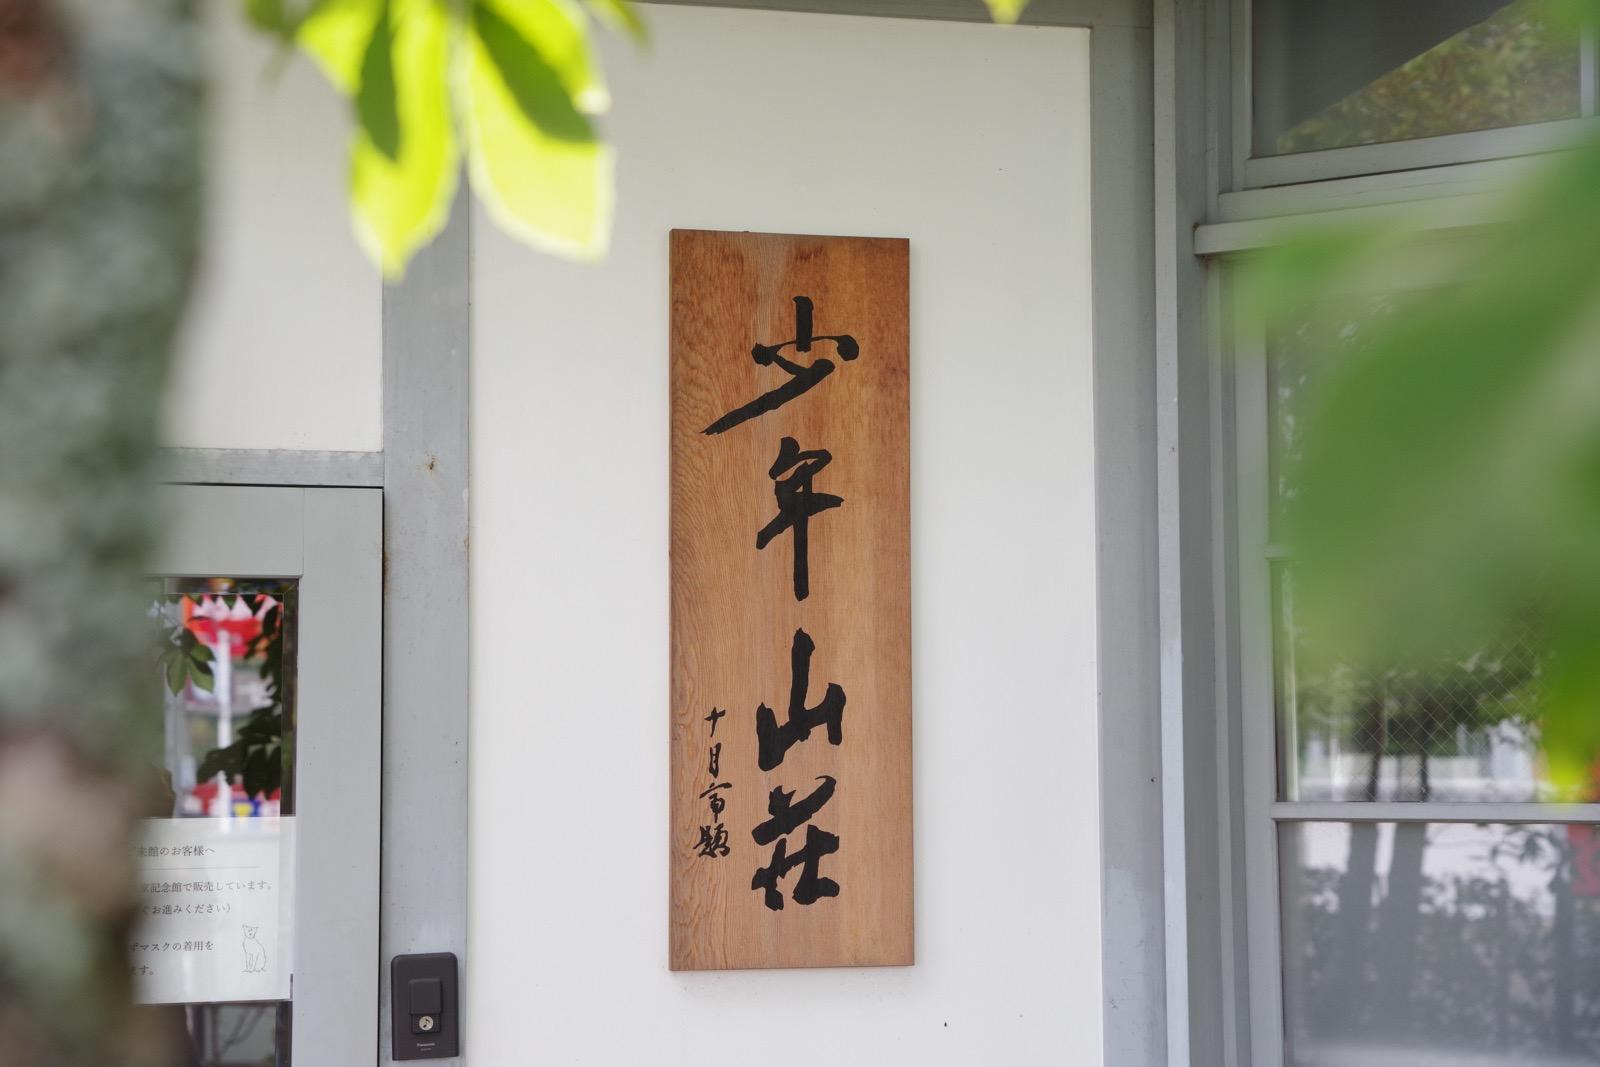 少年山荘
十月
題
来館のお客様へ
家記念館で販売しています。
お進みください）
マスクの着用を
ます。
Panasonic